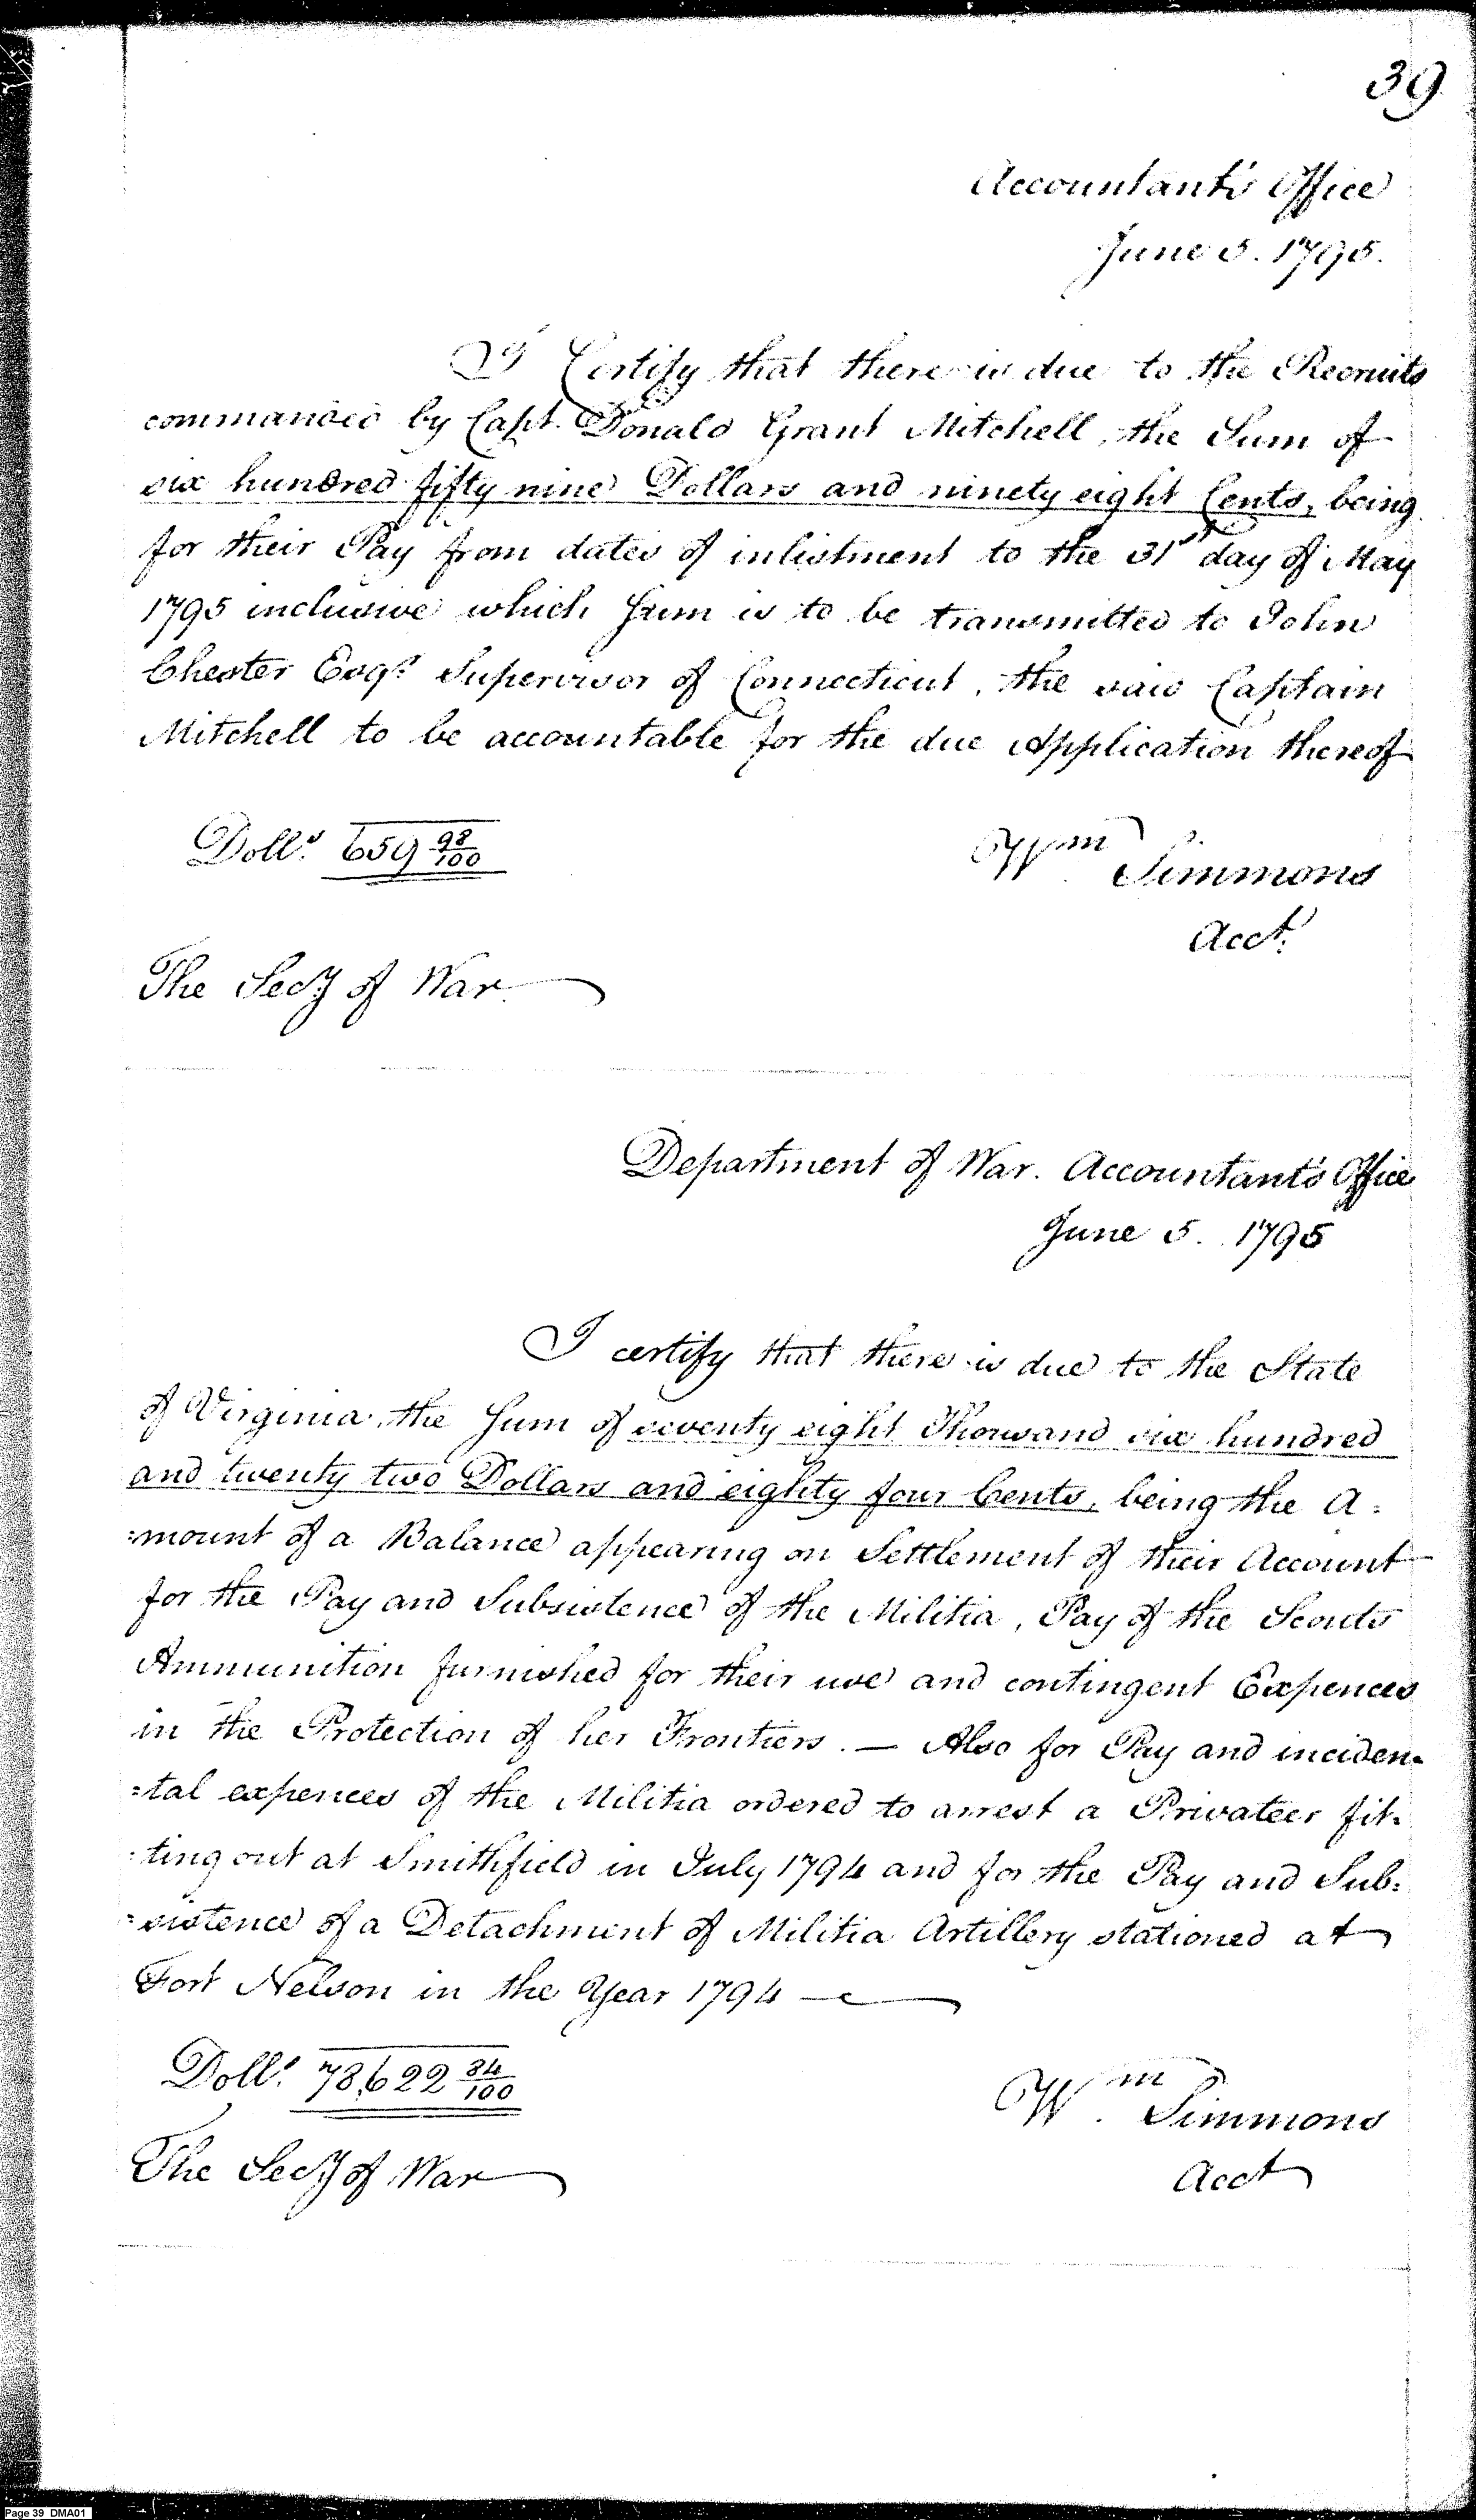 39
Accountant's Office
June 5. 1795.
I Certify that there is due to the Recruits
commanded by Capt. Donald Grant Mitchell, the Sum of
six hundred fifty nine Dollars and ninety eight Cents, being
for their Pay from dates of inlistment to the 31st day of May
1795 inclusive which Sum is to be transmitted to John
Chester Esqr. Supervisor of Connecticut, the said Captain
Mitchell to be accountable for the due Application thereof
Dolls. 659 98/100
Wm Simmons
Acct.
The Secy of War.
Department of War. Accountant's Office
June 5. 1795
I certify that there is due to the State
of Virginia, the Sum of seventy eight Thousand six hundred
and twenty two Dollars and eighty four Cents, being the A=
=mount of a Balance appearing on Settlement of their Account
for the Pay and Subsistence of the Militia, Pay of the Scouts
Ammunition furnished for their use and contingent Expences
in the Protection of her Frontiers. — Also for Pay and inciden=
=tal expences of the Militia ordered to arrest a Privateer fit=
=ting out at Smithfield in July 1794 and for the Pay and Sub=
=sistence of a Detachment of Militia Artillery stationed at
Fort Nelson in the Year 1794 —
Dolls. 78,622 84/100
Wm. Simmons
Acct
The Secy of War
Page 39 DMA01